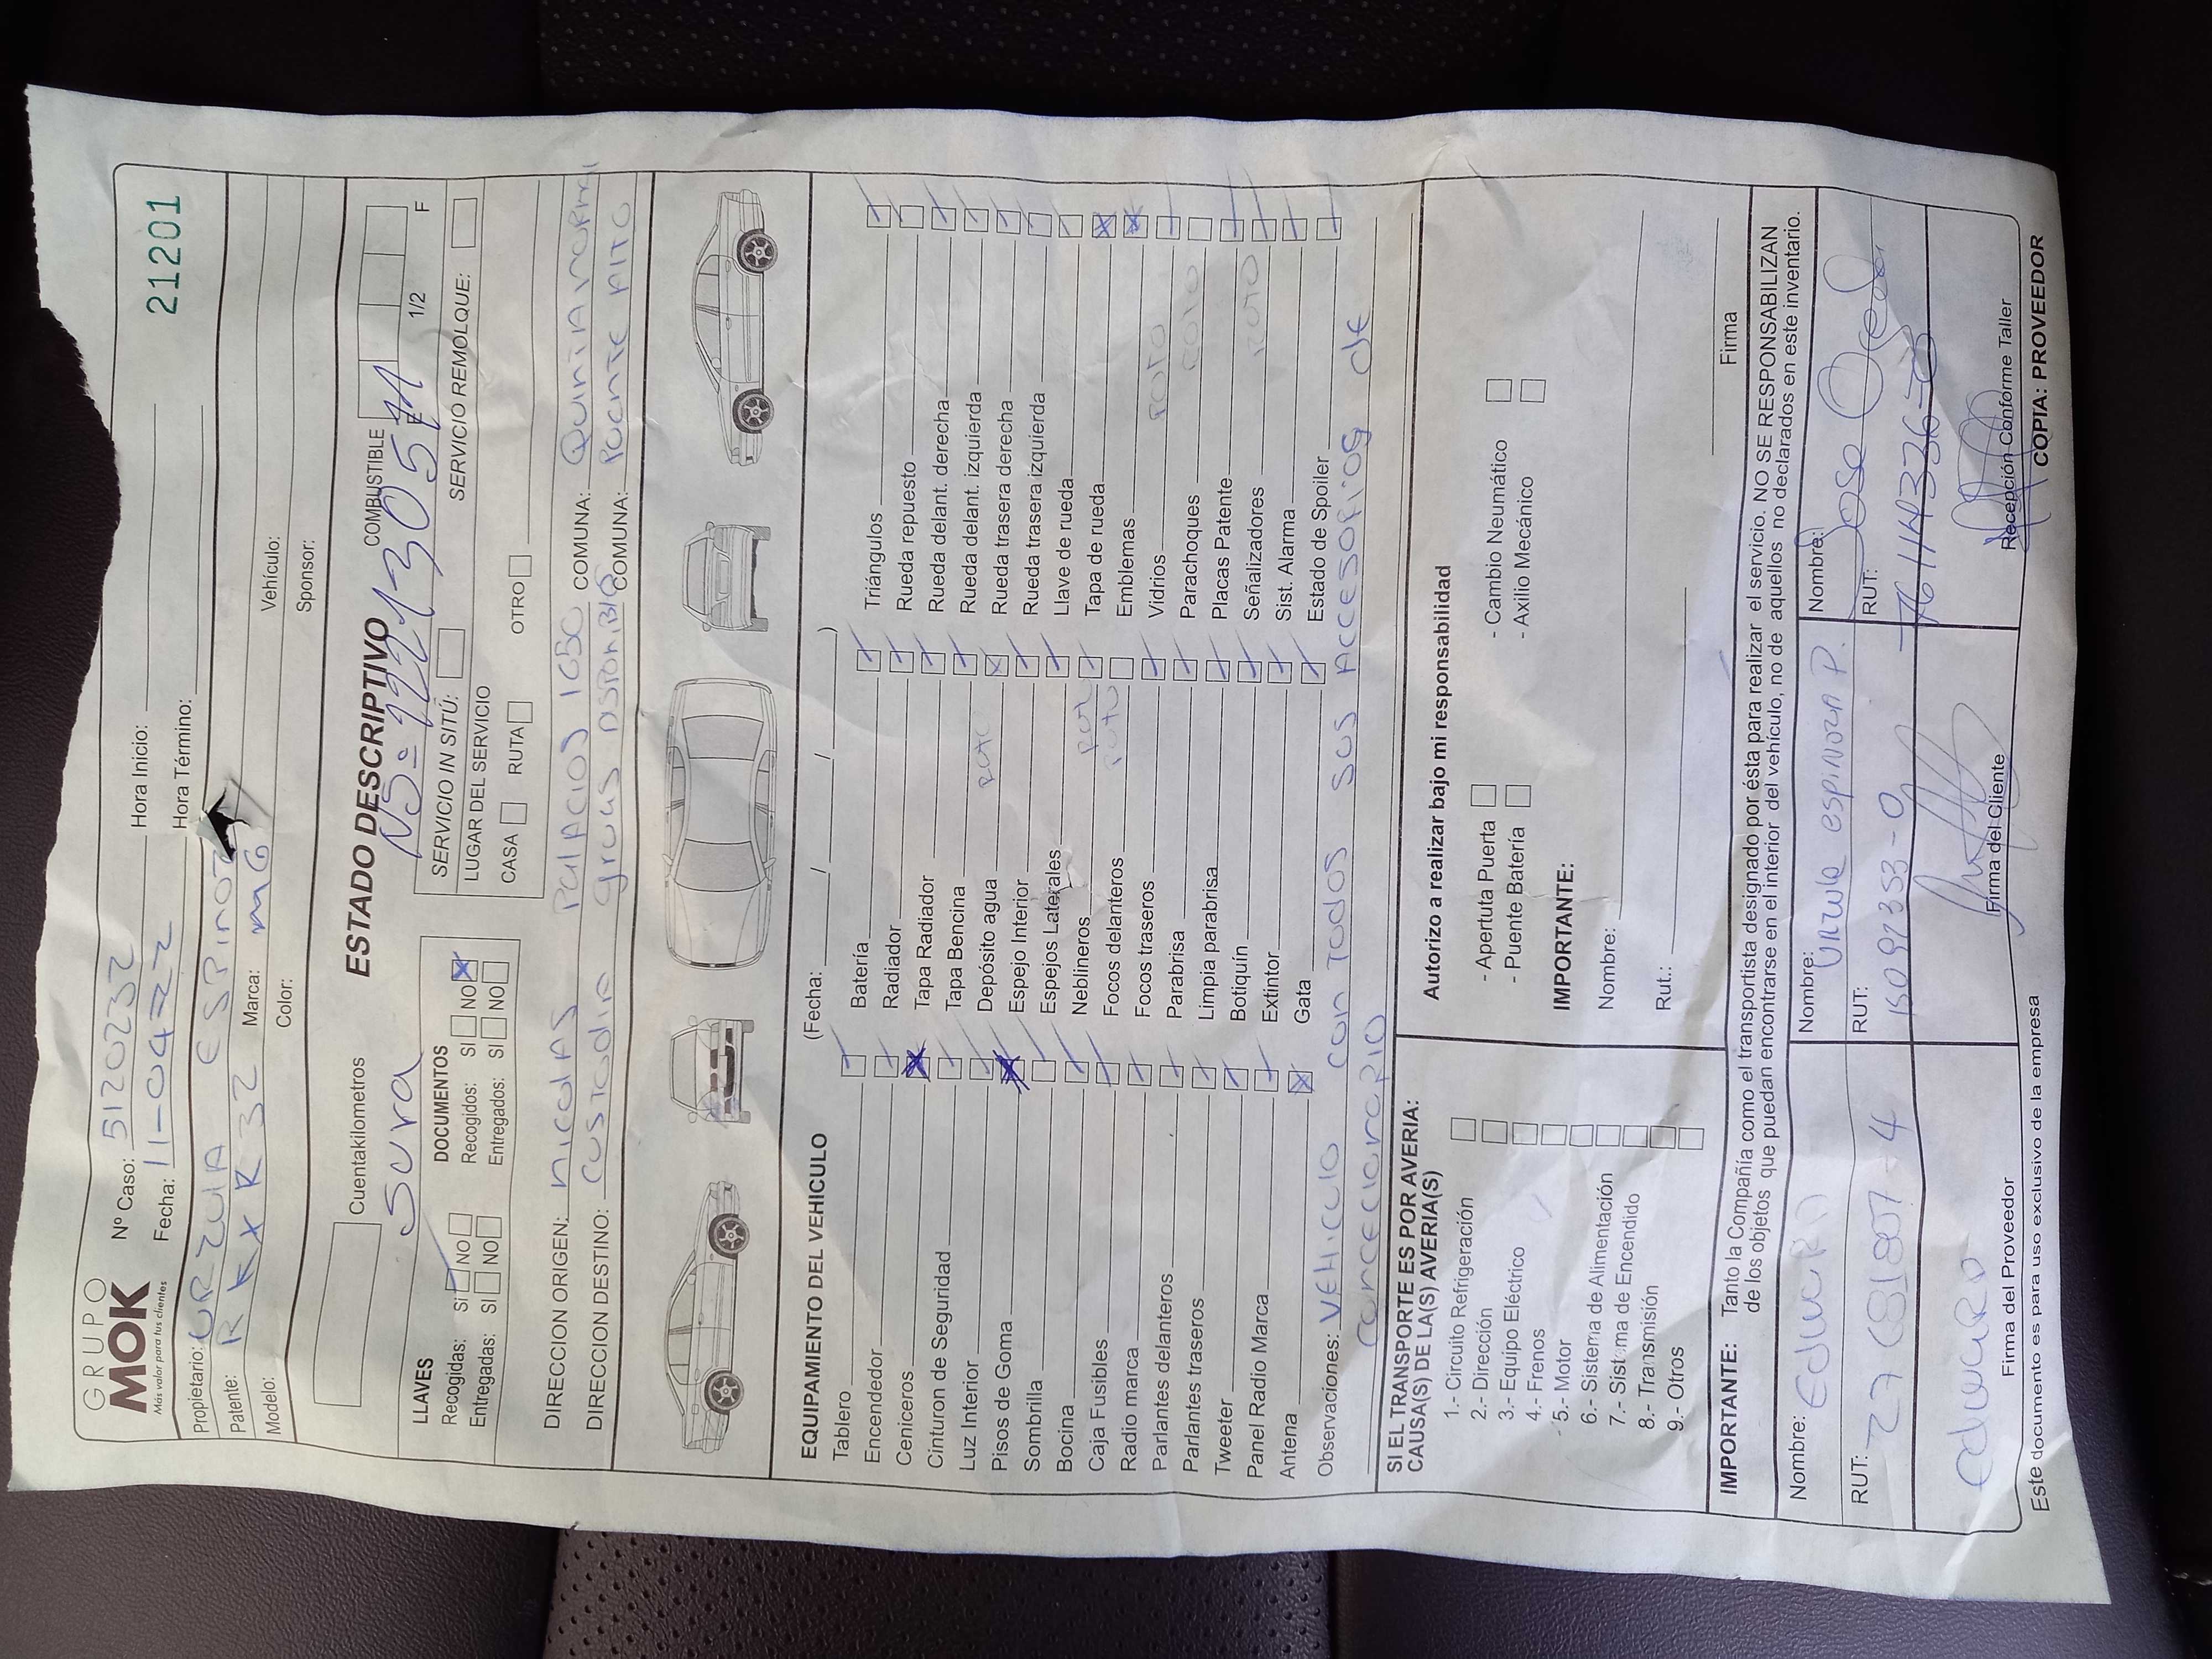 GRUPO
MOK
Más valor para tus clientes
Nº Caso: 5120232 Hora Inicio: 21201
Fecha: 11-04-22 Hora Término:
Propietario: URZULA ESPINOZ
Patente: RKXR32 Marca: MG Vehículo:
Modelo: Color: Sponsor:
ESTADO DESCRIPTIVO
Cuentakilometros COMBUSTIBLE
E 1/2 F
Sura NS=
LLAVES DOCUMENTOS SERVICIO IN SITÚ: SERVICIO REMOLQUE:
Recogidas: SI NO Recogidos: SI NO LUGAR DEL SERVICIO
Entregadas: SI NO Entregados: SI NO CASA RUTA OTRO
DIRECCION ORIGEN: nicolas Palacios 1680 COMUNA: Quinta normal
DIRECCION DESTINO: Custodia gruas COMUNA: Puente Alto
EQUIPAMIENTO DEL VEHICULO (Fecha: / / )
Tablero Batería Triángulos
Encendedor Radiador Rueda repuesto
Ceniceros Tapa Radiador Rueda delant. derecha
Cinturon de Seguridad Tapa Bencina Rueda delant. izquierda
Luz Interior Depósito agua roto Rueda trasera derecha
Pisos de Goma Espejo Interior Rueda trasera izquierda
Sombrilla Espejos Laterales Llave de rueda
Bocina Neblineros Tapa de rueda
Caja Fusibles Focos delanteros roto Emblemas
Radio marca Focos traseros Vidrios roto
Parlantes delanteros Parabrisa Parachoques roto
Parlantes traseros Limpia parabrisa Placas Patente
Tweeter Botiquín Señalizadores roto
Panel Radio Marca Extintor Sist. Alarma
Antena Gata Estado de Spoiler
Observaciones: VEHICULO con todos sus Accesorios de
SI EL TRANSPORTE ES POR AVERIA:
CAUSA(S) DE LA(S) AVERIA(S)
1.- Circuito Refrigeración
2.- Dirección
3.- Equipo Eléctrico
4.- Frenos
5.- Motor
6.- Sistema de Alimentación
7.- Sistema de Encendido
8.- Transmisión
9.- Otros
Autorizo a realizar bajo mi responsabilidad
- Apertuta Puerta - Cambio Neumático
- Puente Batería - Axilio Mecánico
IMPORTANTE:
Nombre:
Rut.: Firma
IMPORTANTE: Tanto la Compañía como el transportista designado por ésta para realizar el servicio. NO SE RESPONSABILIZAN
de los objetos que puedan encontrarse en el interior del vehículo, no de aquellos no declarados en este inventario.
Nombre: Eduardo Nombre: Urzula espinoza P. Nombre: Jose
RUT: RUT: 15092353-0 RUT:
eduardo
Firma del Proveedor Firma del Cliente Recepción Conforme Taller
Este documento es para uso exclusivo de la empresa COPTA: PROVEEDOR